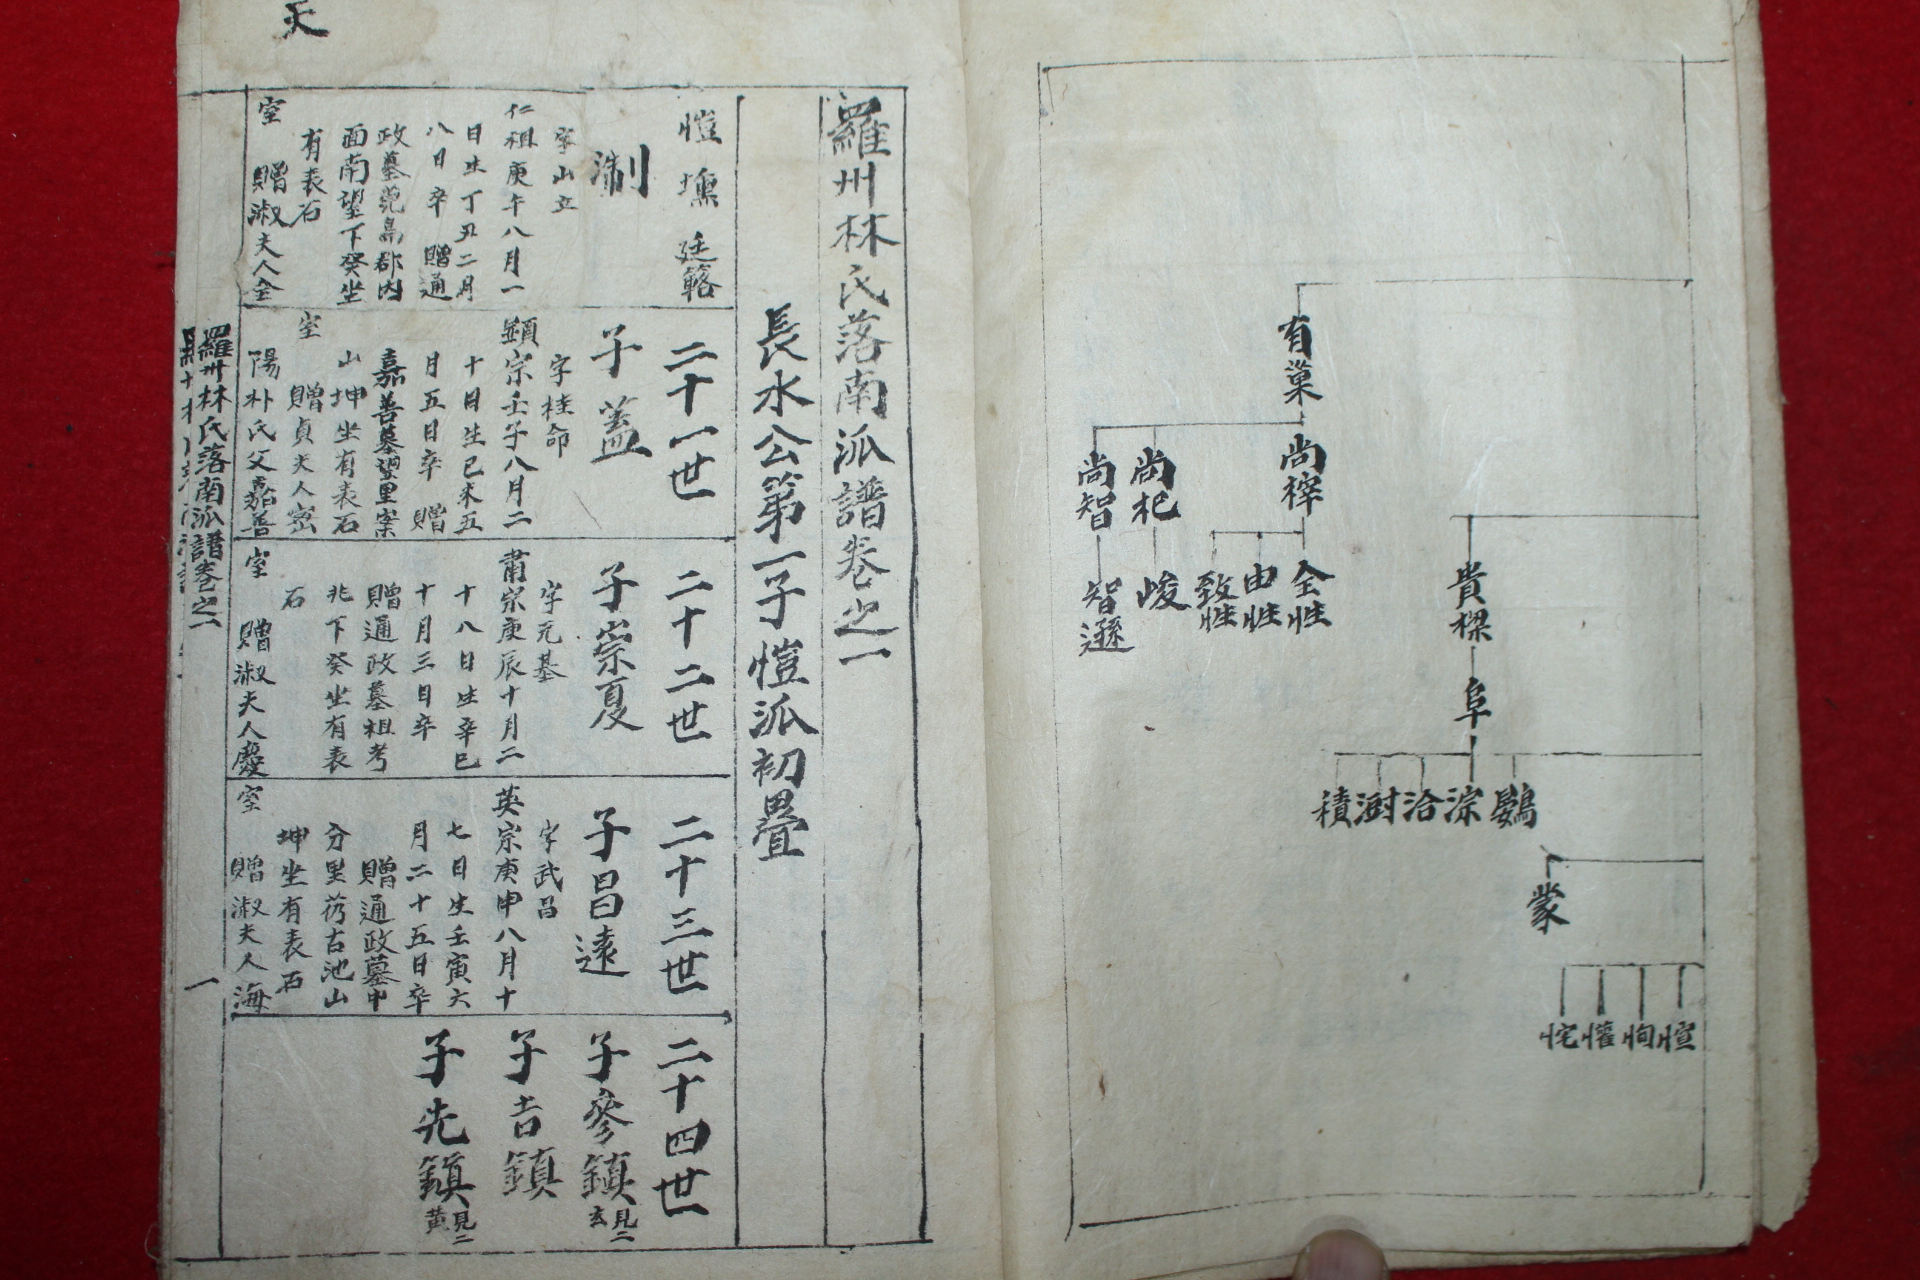 有巢
尚梓
尚杞
尚智
全性
由性
致性
峻
智遜
貴樑
阜
鷃
淙
洽
澍
積
蒙
愃
恂
懽
羅州林氏落南派譜卷之一
長水公第一子愷派初疊
愷 壎 廷簵
淛
字山立
仁祖庚午八月一
日生丁丑二月
八日卒 贈通
政墓菀島郡內
面南望下癸坐
有表石
室 贈淑夫人金
二十一世
子 蓋
字桂命
顯宗壬子八月二
十日生己未五
月五日卒 贈
嘉善墓望里案
山坤坐有表石
室 贈貞夫人密
陽朴氏父嘉善
二十二世
子崇夏
字元基
肅宗庚辰十月二
十八日生辛巳
十月三日卒
贈通政墓祖考
兆下癸坐有表
石
室 贈淑夫人慶
二十三世
子昌遠
字武昌
英宗庚申八月十
七日生壬寅六
月二十五日卒
贈通政墓中
分里芿古池山
坤坐有表石
室 贈淑夫人海
二十四世
子參鎮 見二玄
子吉鎮
子先鎮 見二黃
天
羅州林氏落南派譜卷之一
一